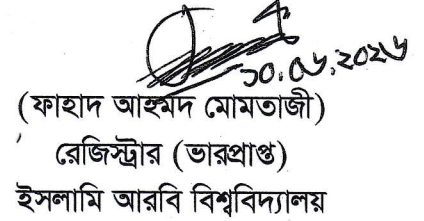 ১০.০৬.২০২৬
(ফাহাদ আহমদ মোমতাজী)
রেজিস্ট্রার (ভারপ্রাপ্ত)
ইসলামি আরবি বিশ্ববিদ্যালয়